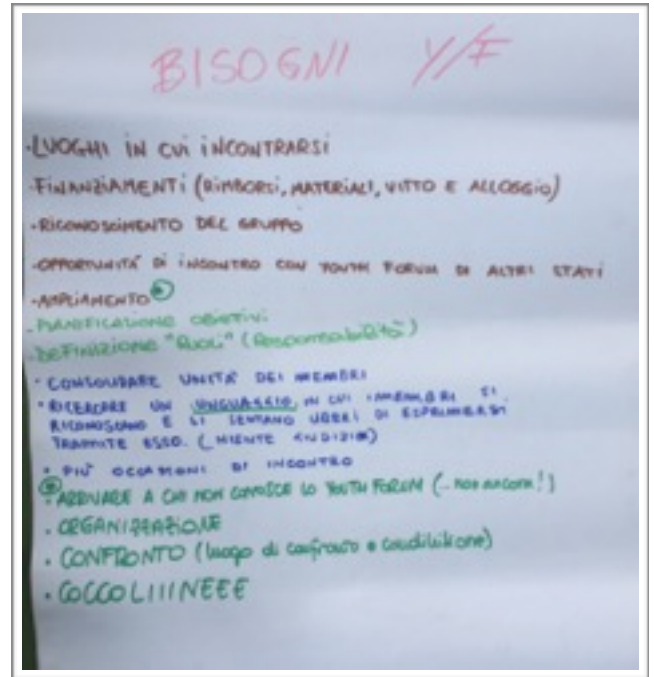 BISOGNI Y/F
-LUOGHI IN CUI INCONTRARSI
-FINANZIAMENTI (RIMBORSI, MATERIALI, VITTO E ALLOGGIO)
-RICONOSCIMENTO DEL GRUPPO
-OPPORTUNITÀ DI INCONTRO CON YOUTH FORUM DI ALTRI STATI
-AMPLIAMENTO
-PIANIFICAZIONE OBIETTIVI
-DEFINIZIONE "RUOLI" (Responsabilità)
• CONSOLIDARE UNITÀ DEI MEMBRI
• RICERCARE UN LINGUAGGIO IN CUI I MEMBRI SI
RICONOSCANO E SI SENTANO LIBERI DI ESPRIMERSI
TRAMITE ESSO. (NIENTE GIUDIZIO)
• PIÙ OCCASIONI DI INCONTRO
• ARRIVARE A CHI NON CONOSCE LO YOUTH FORUM (... non ancora!)
• ORGANIZZAZIONE
• CONFRONTO (luogo di confronto e condivisione)
• COCCOLIIINEEE